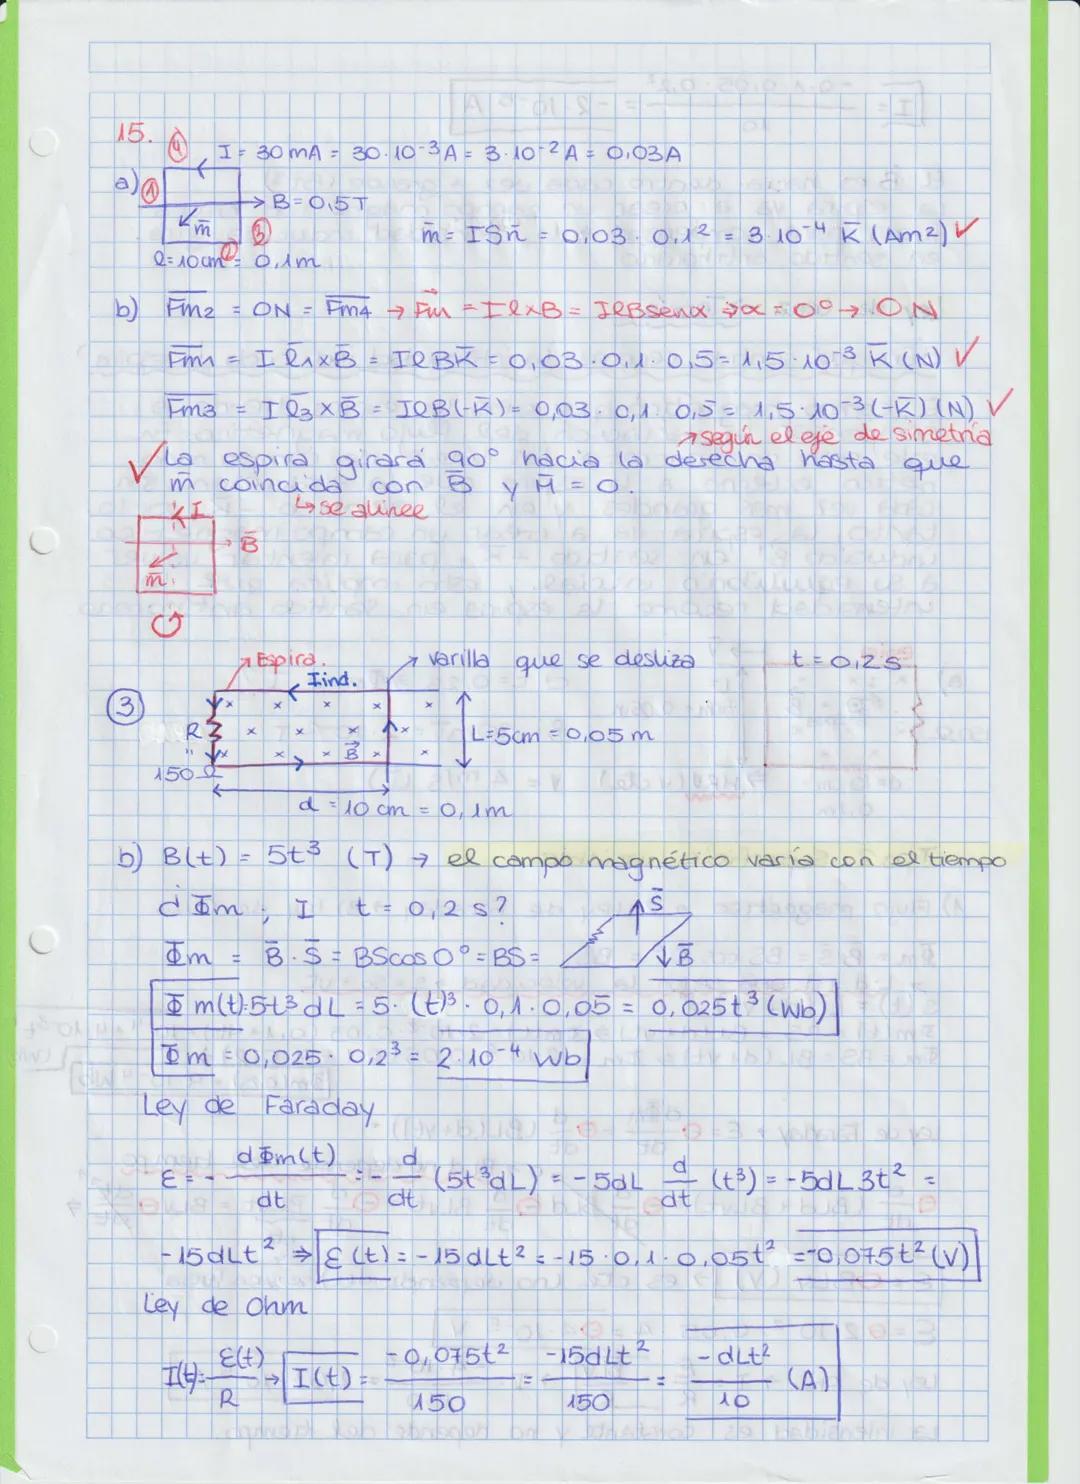 15.
④ I = 30 mA = 30·10⁻³A = 3·10⁻²A = 0,03A
a) ① → B = 0,5T
m̄ ③ m̄ = ISn̄ = 0,03 · 0,1² = 3·10⁻⁴ K̄ (Am²) ✓
l=10cm ② = 0,1m
b) F̄m2 = 0N = F̄m4 → F⃗m = I l×B = IlBsenα ⇒ α = 0° → 0 N
F̄m1 = I l̄1×B̄ = IlBK̄ = 0,03·0,1·0,5 = 1,5·10⁻³ K̄ (N) ✓
F̄m3 = I l̄3×B̄ = IlB(-K̄) = 0,03·0,1·0,5 = 1,5·10⁻³(-K̄)(N) ✓
↗ según el eje de simetría
✓ La espira girará 90° hacia la derecha hasta que
m̄ coincida con B̄ y M̄ = 0.
↳ se alinee
I
B̄
m̄
Espira. varilla que se desliza t = 0,2 s
Iind.
③
R B⃗ L=5cm = 0,05 m
"
150 Ω
d = 10 cm = 0,1m
b) B(t) = 5t³ (T) → el campo magnético varía con el tiempo
d Φm ; I t = 0,2 s? S̄
Φm = B̄ · S̄ = BScos0° = BS = B̄
Φm(t)=5t³dL = 5·(t)³ · 0,1 · 0,05 = 0,025t³ (Wb)
Φm = 0,025 · 0,2³ = 2·10⁻⁴ Wb
Ley de Faraday
ε = - dΦm(t)/dt = - d/dt (5t³dL) = -5dL d/dt (t³) = -5dL3t² =
-15dLt² ⇒ ε(t) = -15dLt² = -15·0,1·0,05t² = -0,075t² (V)
Ley de Ohm
I(t) = ε(t)/R → I(t) = -0,075t²/150 = -15dLt²/150 = -dLt²/10 (A)